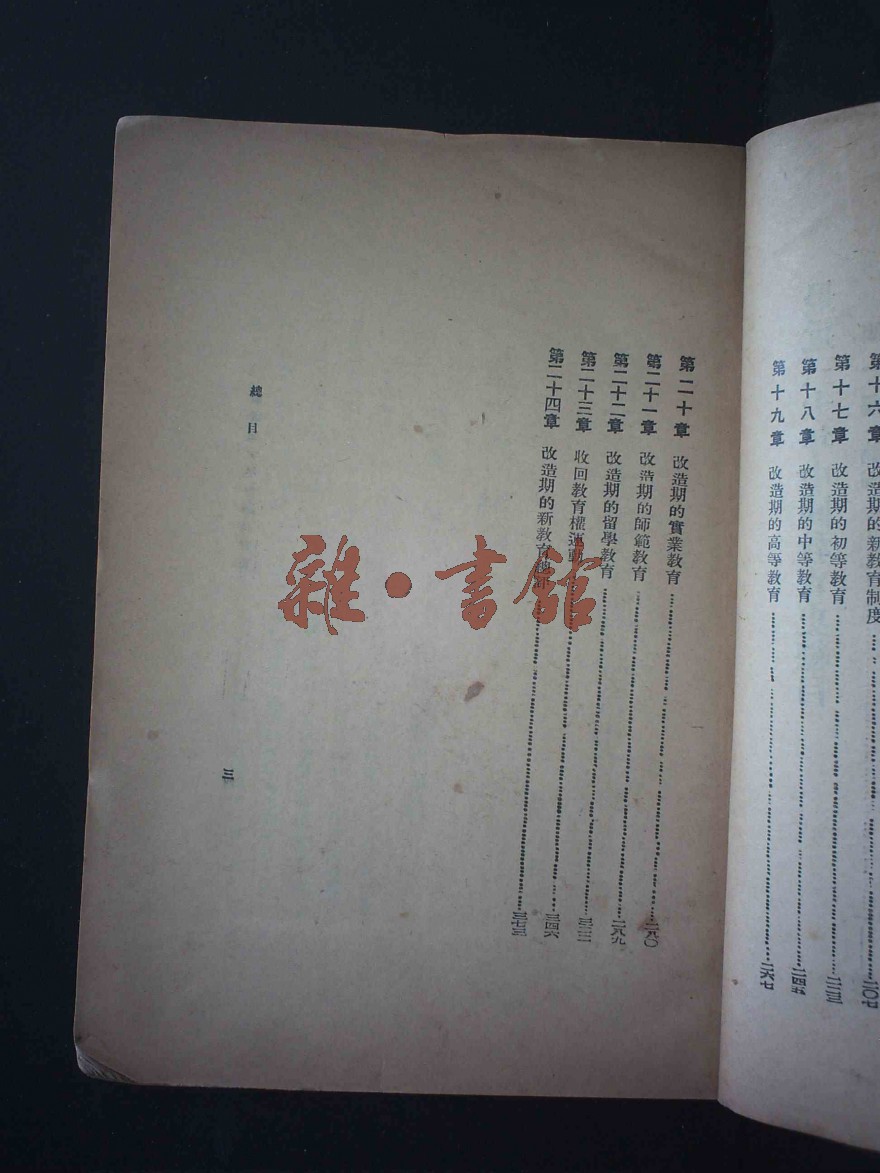 第十六章 改造期的新教育制度……二〇七
第十七章 改造期的初等教育……二二三
第十八章 改造期的中等教育……二四五
第十九章 改造期的高等教育……二六七
第二十章 改造期的實業教育……二八〇
第二十一章 改造期的師範教育……二八九
第二十二章 改造期的留學教育……
第二十三章 收回教育權運動……三四六
第二十四章 改造期的新教育……三七三
總目
三
雜·書館